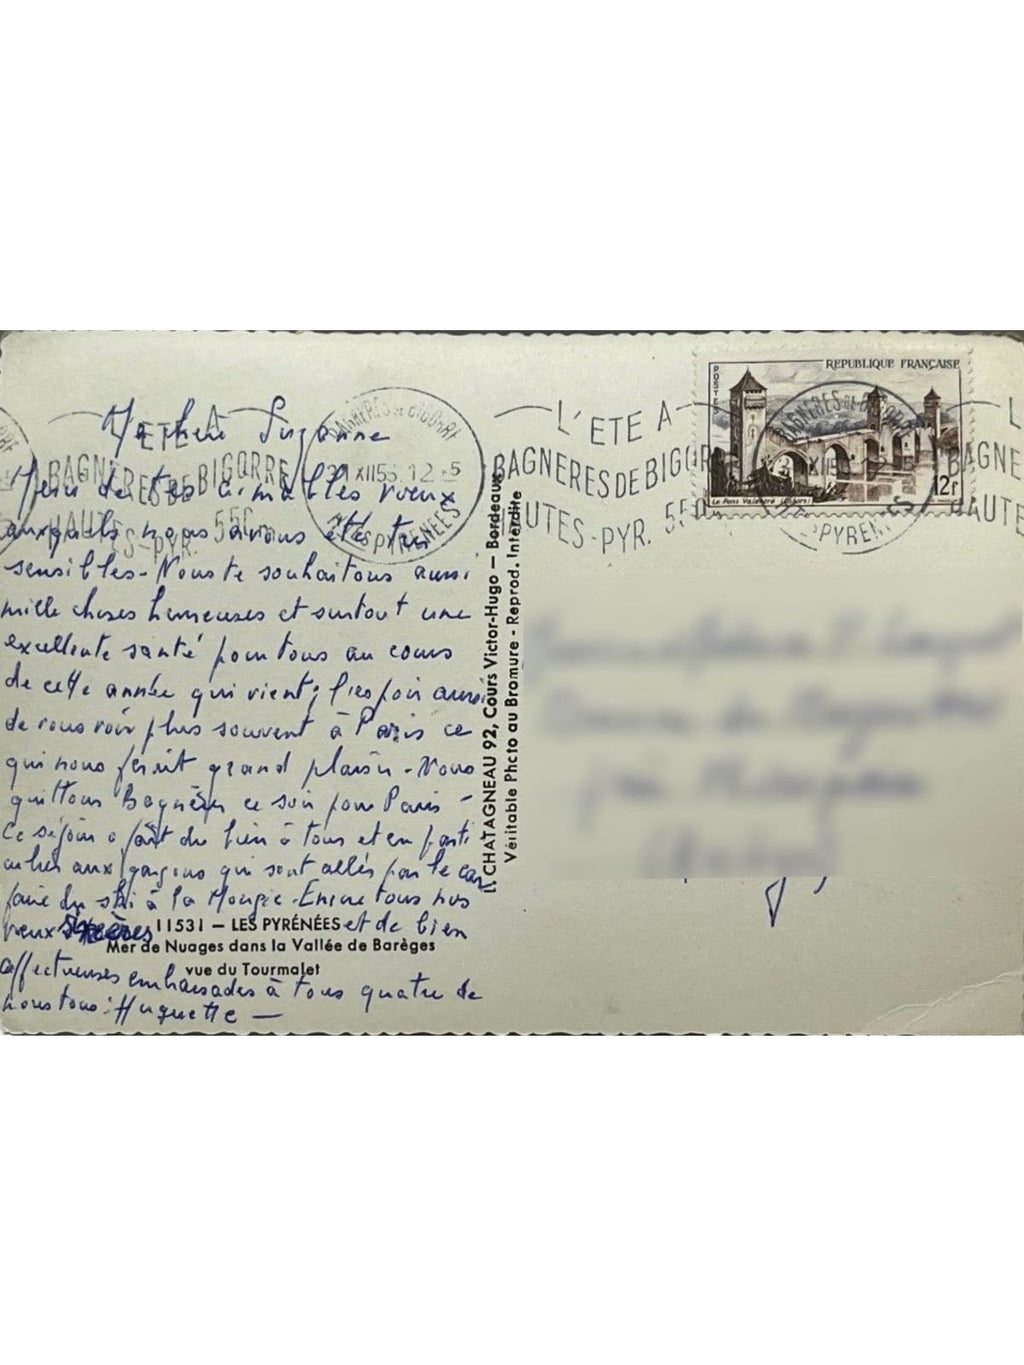 Ma chère Suzanne
Merci de tes aimables vœux
auxquels nous avons été très
sensibles - Nous te souhaitons aussi
mille choses heureuses et surtout une
excellente santé pour tous au cours
de cette année qui vient; j'espoir aussi
de vous voir plus souvent à Paris ce
qui nous ferait grand plaisir - Nous
quittons Bagnères ce soir pour Paris -
Ce séjour a fait du bien à tous et en parti
culier aux garçons qui sont allés par le car
faire du ski à la Mongie - Encore tous nos
vœux sincères et de bien
affectueuses embrassades à tous quatre de
nous tous: Huguette -
11531 - LES PYRÉNÉES
Mer de Nuages dans la Vallée de Barèges
vue du Tourmalet
CHATAGNEAU 92, Cours Victor-Hugo - Bordeaux
Véritable Photo au Bromure - Reprod. Interdite
L'ETE A
BAGNERES DE BIGORRE
HAUTES-PYR. 550
BAGNERES DE BIGORRE
XII 56
HTES PYRENEES
L'ETE A
BAGNERES DE BIGORRE
HAUTES-PYR.
POSTES
REPUBLIQUE FRANÇAISE
Le Pont Valentré (Cahors)
12F